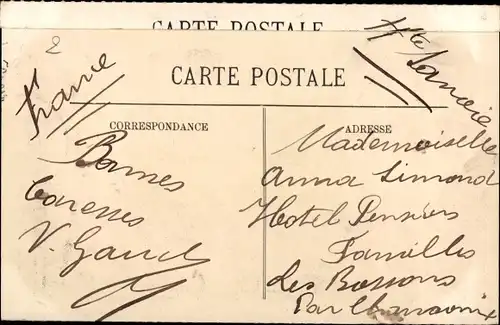 CARTE POSTALE
CARTE POSTALE
France
Hte Savoie
CORRESPONDANCE
ADRESSE
Bonnes
Caresses
V. Gaud
Mademoiselle
Anna Simond
Hotel Pension
Familles
des Bossons
Par Chamonix